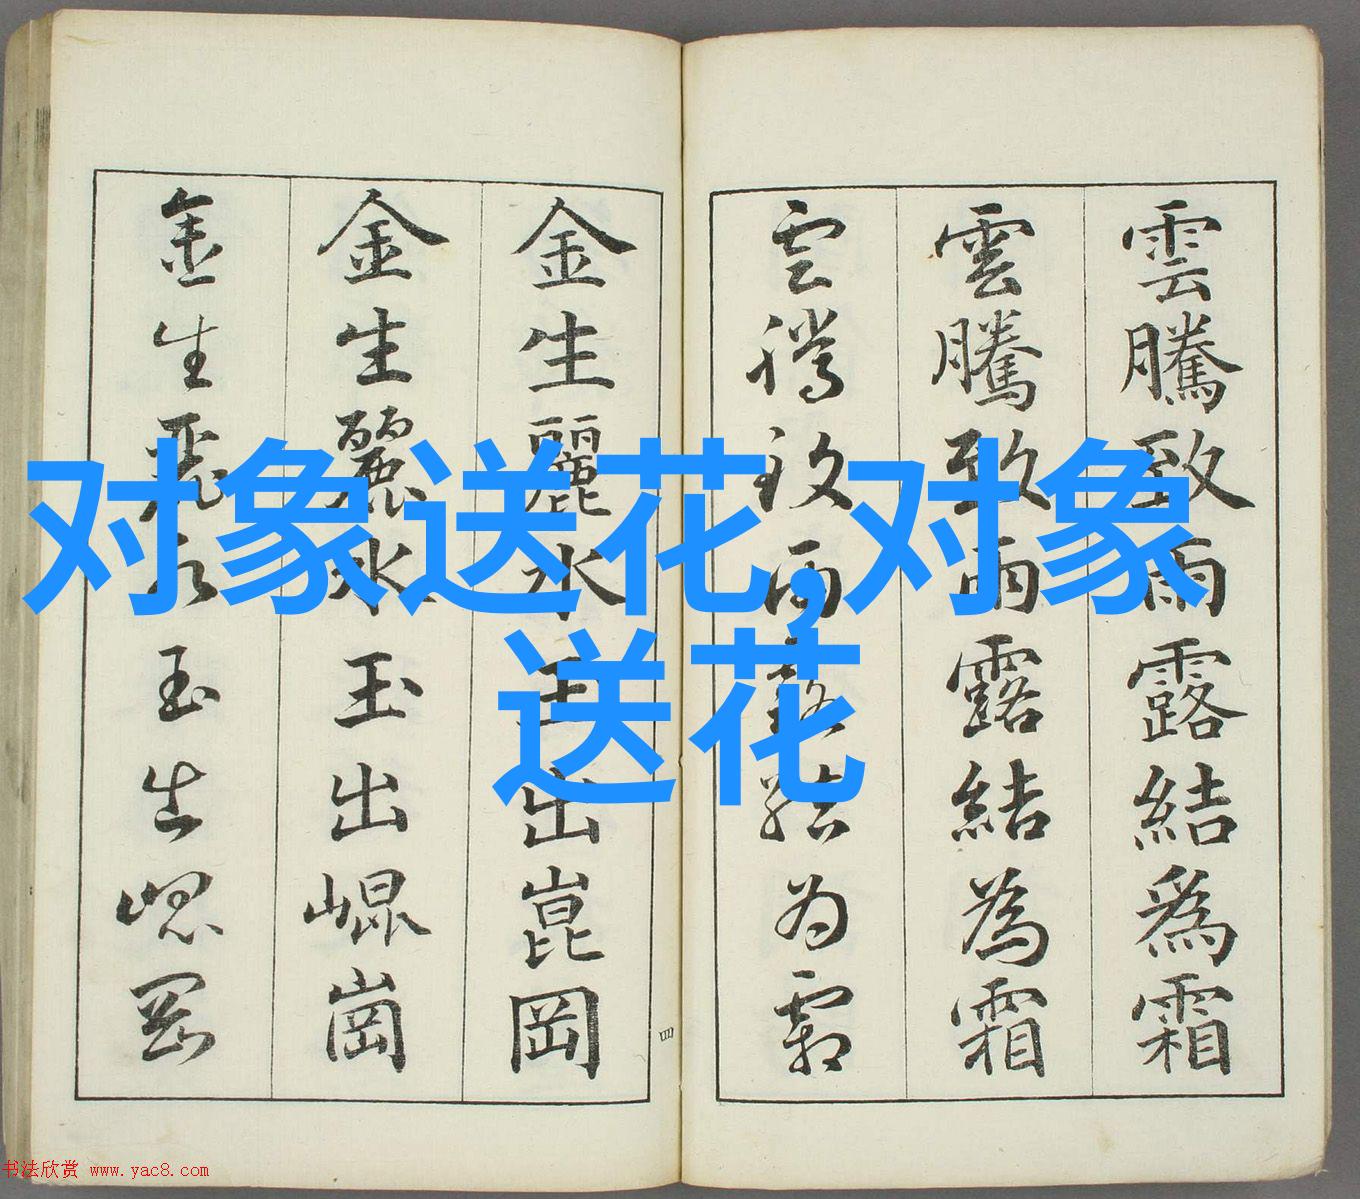 雲騰致雨露結為霜
雲騰致雨露結為霜
雲騰致雨露結為霜
金生麗水玉出崑岡
金生麗水玉出崐崗
金生麗水玉出崐岡
四
对象送花,对象
送花
书法欣赏 www.yac8.com